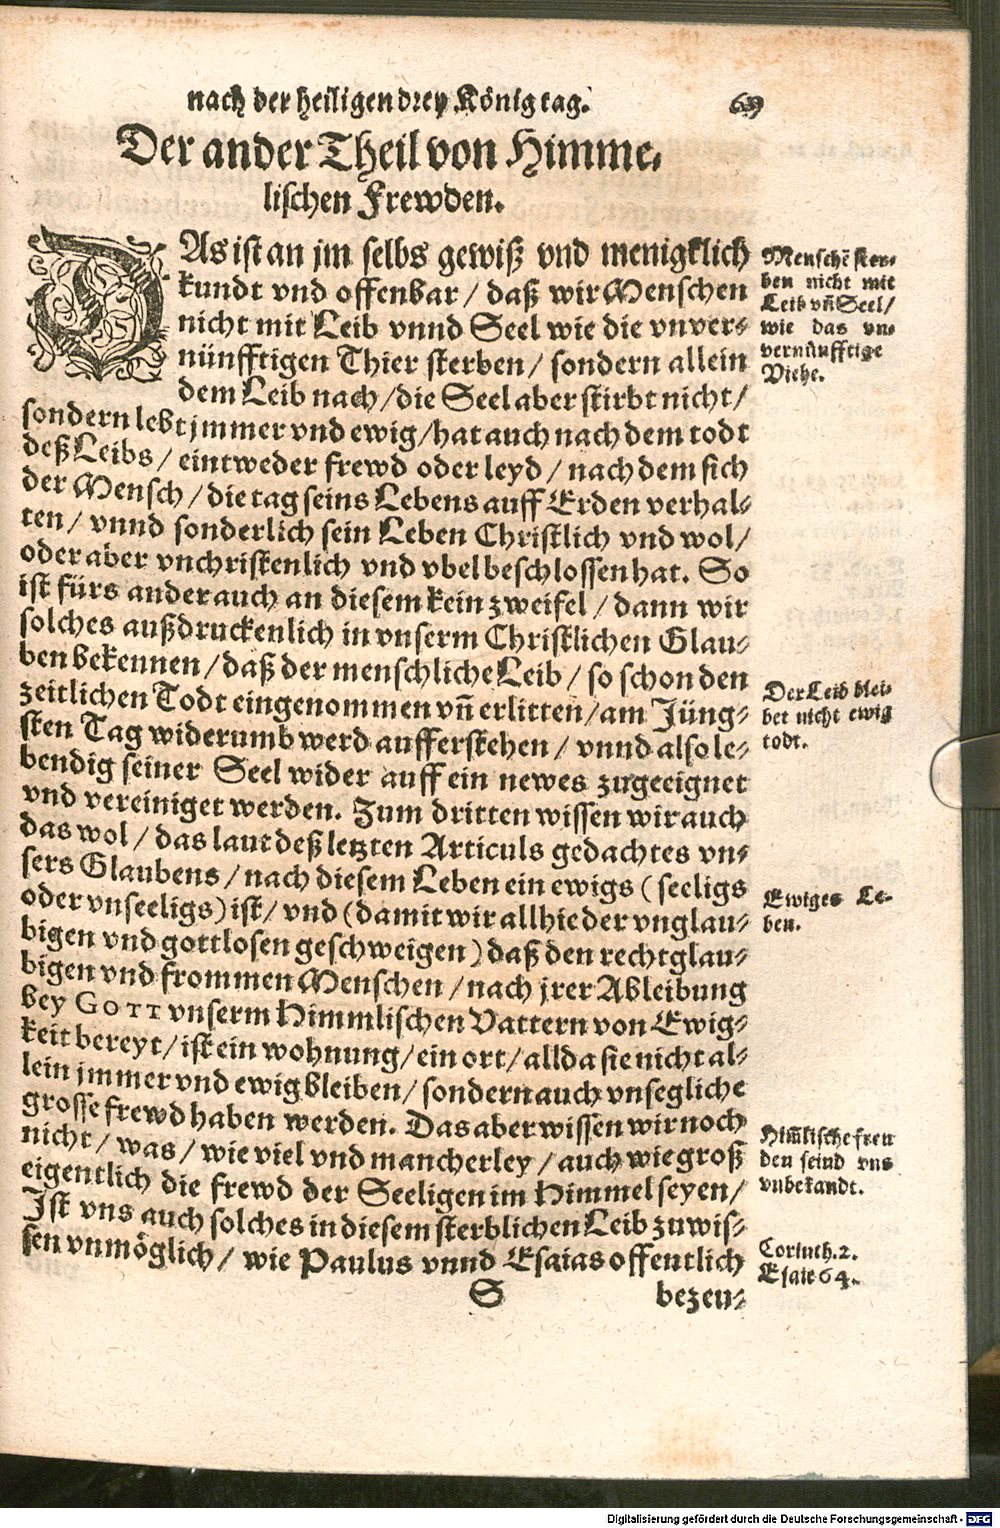 nach der heiligen drey König tag. 69
Der ander Theil von Himme-
lischen Frewden.
DAs ist an jm selbs gewiß vnd menigklich
kundt vnd offenbar / daß wir Menschen
nicht mit Leib vnnd Seel wie die vnver-
nünfftigen Thier sterben / sondern allein
dem Leib nach / die Seel aber stirbt nicht /
sondern lebt jmmer vnd ewig / hat auch nach dem todt
deß Leibs / eintweder frewd oder leyd / nach dem sich
der Mensch / die tag seins Lebens auff Erden verhal-
ten / vnnd sonderlich sein Leben Christlich vnd wol /
oder aber vnchristenlich vnd vbel beschlossen hat. So
ist fürs ander auch an diesem kein zweifel / dann wir
solches außdruckenlich in vnserm Christlichen Glau-
ben bekennen / daß der menschliche Leib / so schon den
zeitlichen Todt eingenommen vn̄ erlitten / am Jüng-
sten Tag widerumb werd aufferstehen / vnnd also le-
bendig seiner Seel wider auff ein newes zugeeignet
vnd vereiniget werden. Zum dritten wissen wir auch
das wol / das laut deß letzten Articuls gedachtes vn-
sers Glaubens / nach diesem Leben ein ewigs (seeligs
oder vnseeligs) ist / vnd (damit wir allhie der vnglau-
bigen vnd gottlosen geschweigen) daß den rechtglau-
bigen vnd frommen Menschen / nach jrer Ableibung
bey GOTT vnserm Himmlischen Vattern von Ewig-
keit bereyt / ist ein wohnung / ein ort / allda sie nicht al-
lein jmmer vnd ewig bleiben / sondern auch vnsegliche
grosse frewd haben werden. Das aber wissen wir noch
nicht / was / wie viel vnd mancherley / auch wie groß
eigentlich die frewd der Seeligen im Himmel seyen /
Ist vns auch solches in diesem sterblichen Leib zu wis-
sen vnmöglich / wie Paulus vnnd Esaias offentlich
S bezen-
Menschē ster-
ben nicht mit
Leib vn̄ Seel /
wie das vn-
vernünfftige
Viehe.
Der Leib blei-
bet nicht ewig
todt.
Ewiges Le-
ben.
Him̄lische freu
den seind vns
vnbekandt.
Corinth. 2.
Esaie 64.
Digitalisierung gefördert durch die Deutsche Forschungsgemeinschaft - DFG